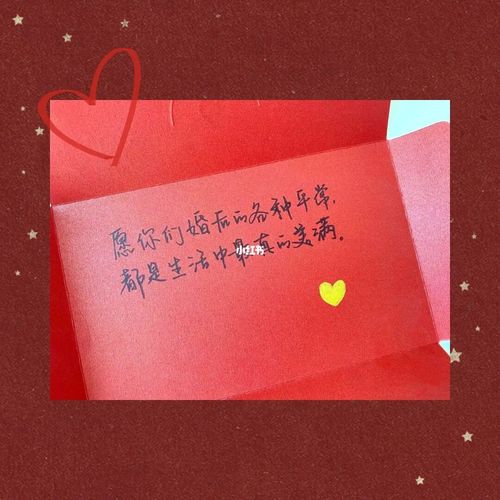 愿你们婚后的各种平常，
都是生活中最真的美满。
小红书